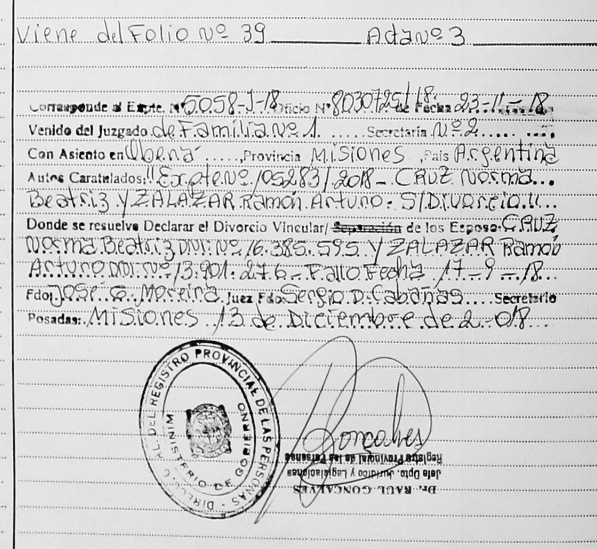 Viene del Folio Nº 39 Acta nº 3
Corresponde al Expte. Nº 5058-J-18 Oficio Nº 8030725/18 de Fecha 23-11-18
Venido del Juzgado de Familia Nº 1 ..... Secretaría Nº 2 ..... ....
Con Asiento en Oberá ....., Provincia Misiones, País Argentina
Autos Caratulados: "Expte Nº 105283/2018 - CRUZ Norma...
Beatriz y ZALAZAR Ramón Arturo - S/Divorcio"..
Donde se resuelve Declarar el Divorcio Vincular/ Separación de los Esposo CRUZ
Norma Beatriz DNI. Nº 16.385.595 Y ZALAZAR Ramón
Arturo DNI. Nº 13.901.276 - Fallo Fecha 17-9-18.
Fdo: José G. Moreira Juez Fdo Sergio D. Cabañas .... Secretario
Posadas: Misiones, 13 de Diciembre de 2.018...
DIRECCION GRAL. DEL REGISTRO PROVINCIAL DE LAS PERSONAS
MINISTERIO DE GOBIERNO
Goncalves
Dr. RAUL GONCALVES
Jefe Dpto. Jurídico y Legislaciones
Registro Provincial de las Personas